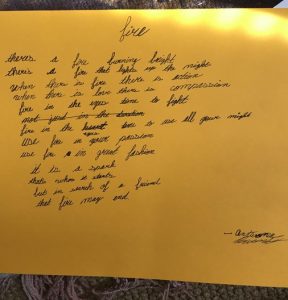 fire
there's a fire burning bright
there's a fire that lights up the night
when there is fire there is action
when there is love there is compassion
fire in the eyes done to fight
not just in the
fire in the heart done to use all your might
use fire in your passion
use fire in great fashion
it is a spark
that's when it starts
but in search of a friend
that fire may end